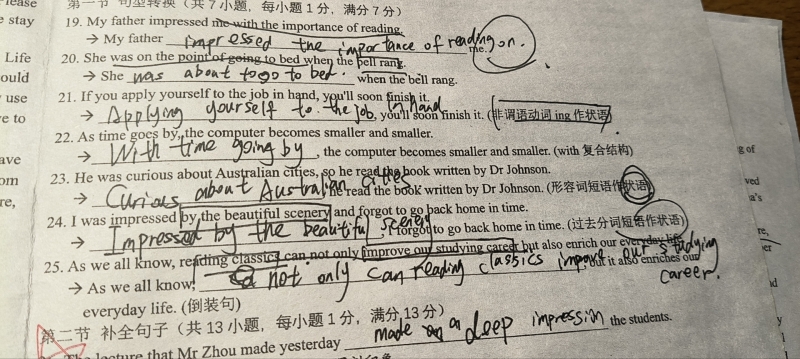 第一节 句型转换（共7小题，每小题1分，满分7分）
stay
19. My father impressed me with the importance of reading.
→ My father impressed the importance of reading on me.
Life
20. She was on the point of going to bed when the bell rang.
ould
→ She was about to go to bed. when the bell rang.
use
21. If you apply yourself to the job in hand, you'll soon finish it.
e to
→ Applying yourself to the job in hand, you'll soon finish it. (非谓语动词 ing 作状语)
22. As time goes by, the computer becomes smaller and smaller.
ave
→ With time going by, the computer becomes smaller and smaller. (with 复合结构)
g of
om
23. He was curious about Australian cities, so he read the book written by Dr Johnson.
ved
re,
→ Curious about Australian cities he read the book written by Dr Johnson. (形容词短语作状语)
a's
24. I was impressed by the beautiful scenery and forgot to go back home in time.
→ Impressed by the beautiful scenery I forgot to go back home in time. (过去分词短语作状语)
re,
25. As we all know, reading classics can not only improve our studying career but also enrich our everyday life.
→ As we all know, not only can reading classics improve our studying career. but it also enriches our
everyday life. (倒装句)
第二节 补全句子（共13小题，每小题1分，满分13分）
lecture that Mr Zhou made yesterday made a deep impression the students.